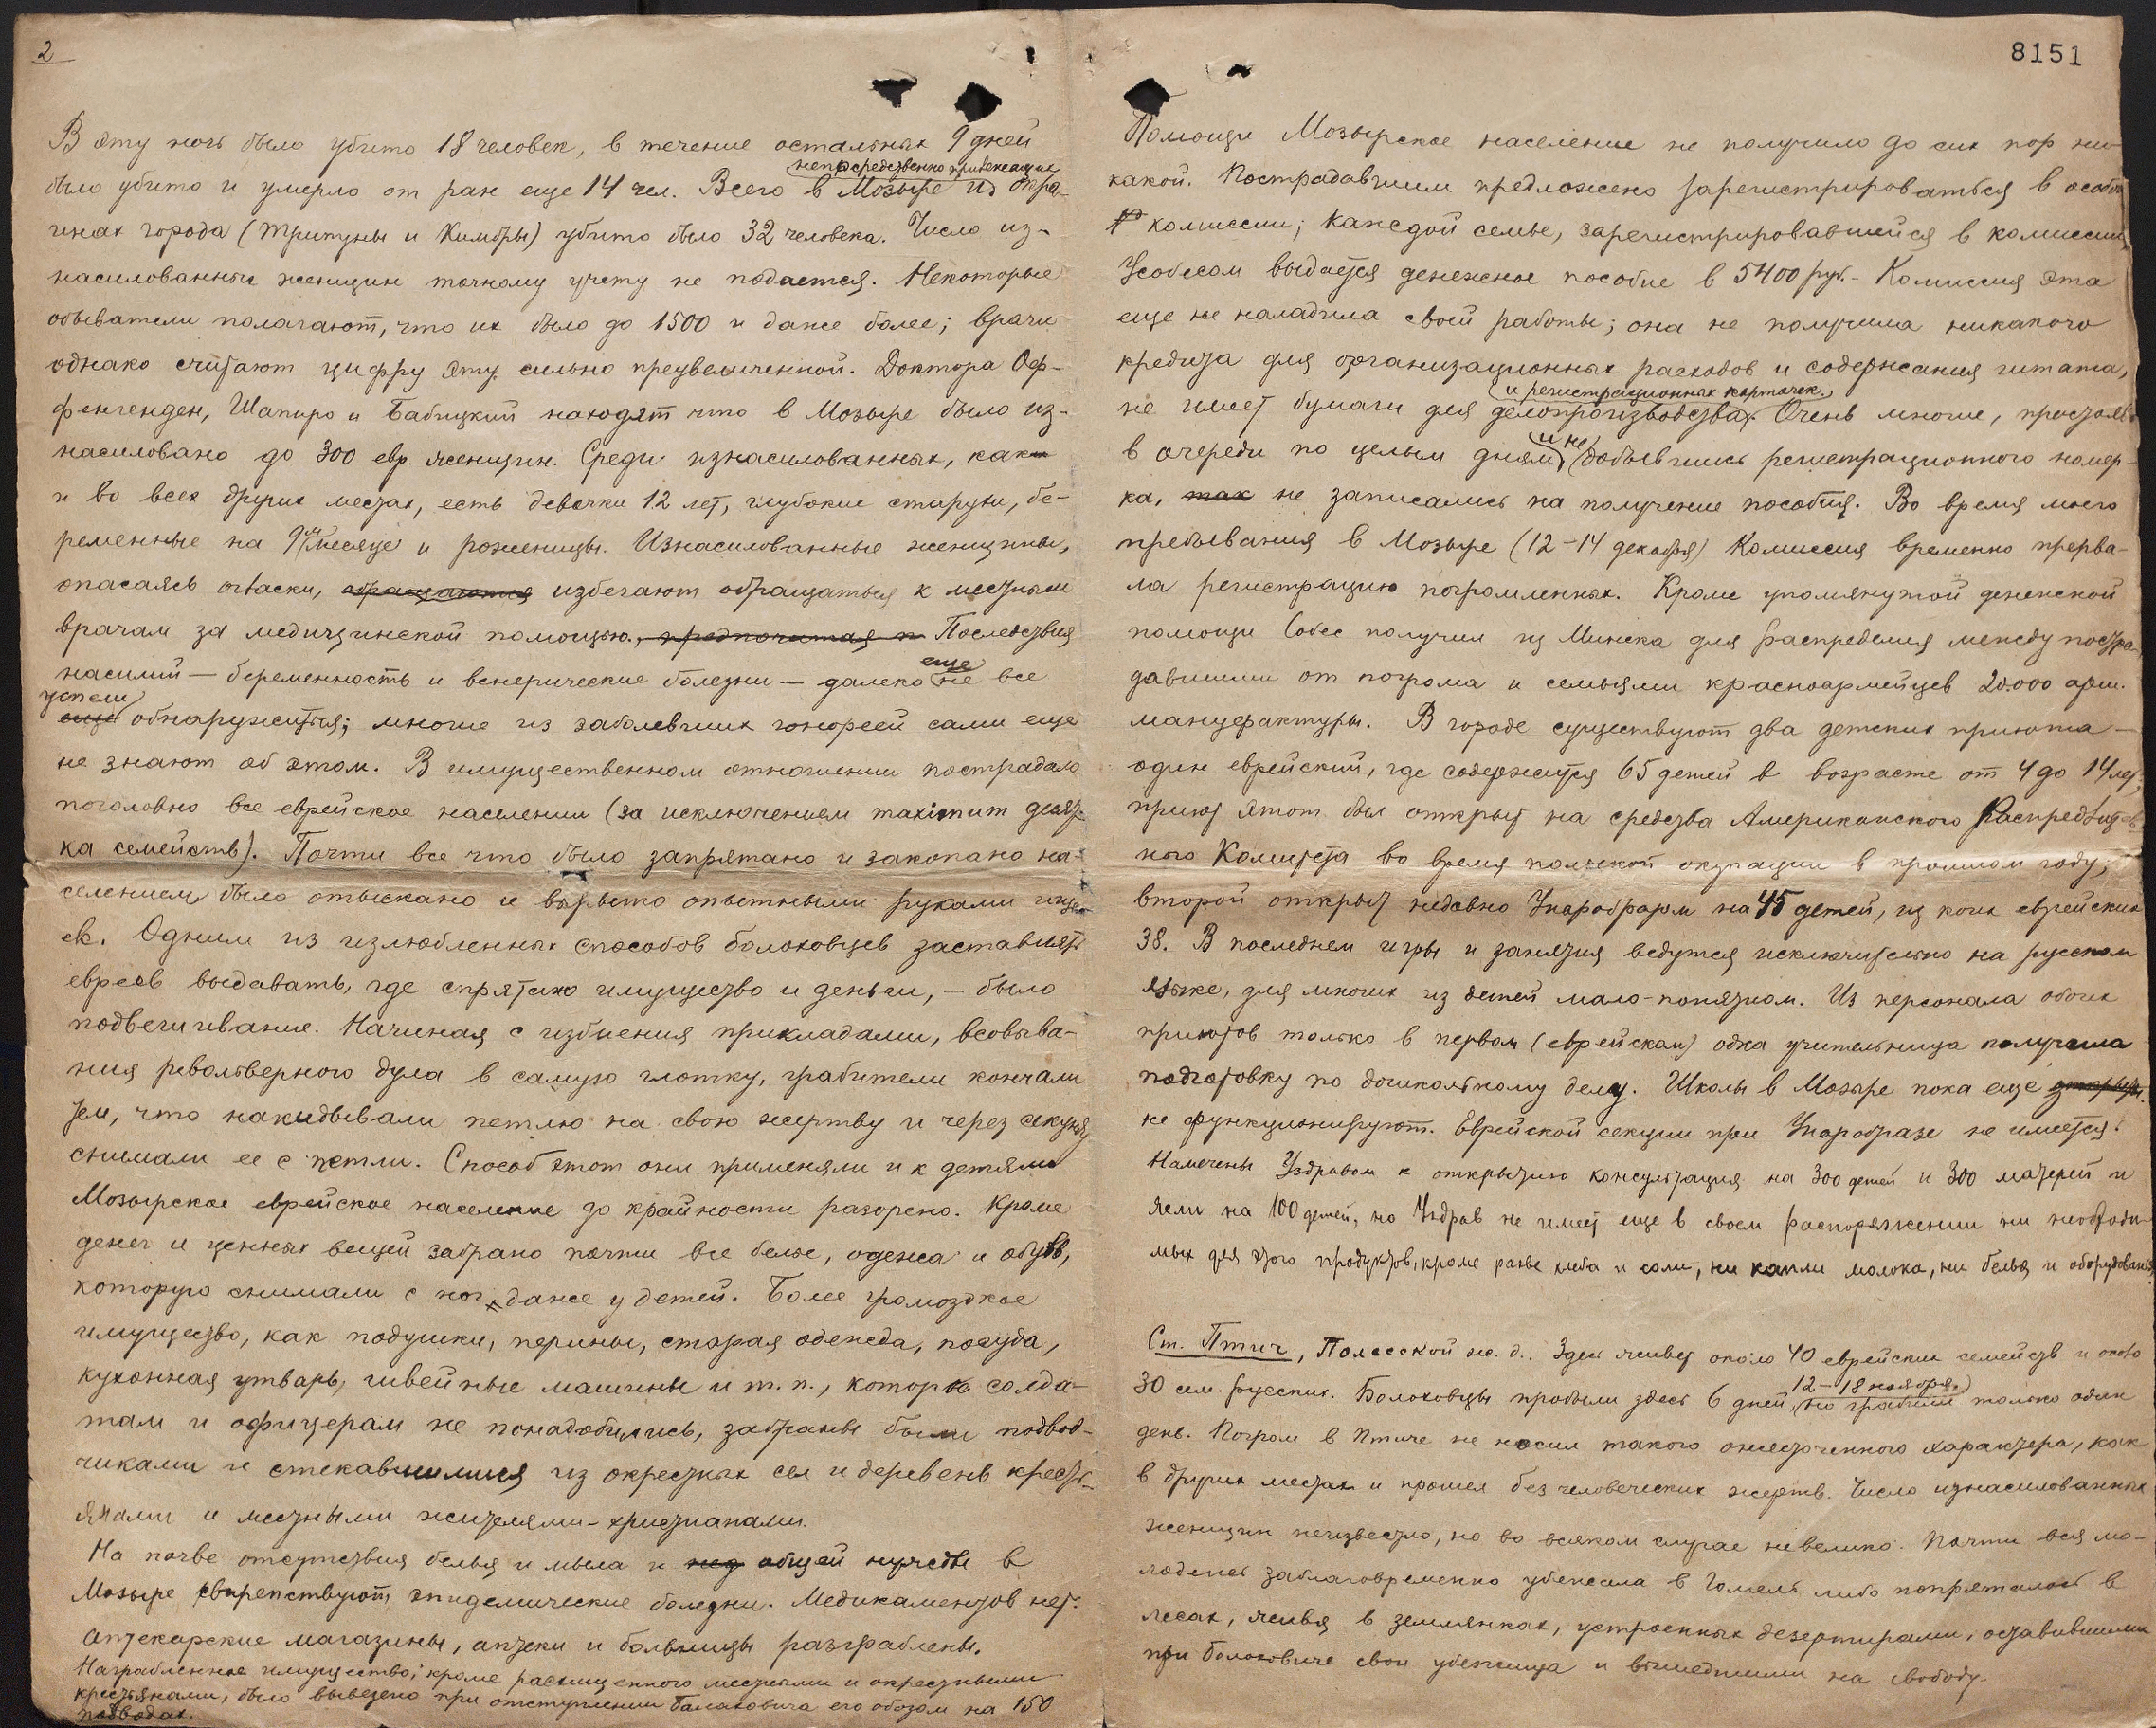 2
В эту ночь было убито 18 человек, в течение остальных 9 дней
непосредственно прилежащие
было убито и умерло от ран еще 14 чел. Всего в Мозыре из окра-
инах города (Тригуны и Кимбры) убито было 32 человека. Число из-
насилованных женщин точному учету не подается. Некоторые
обыватели полагают, что их было до 1500 и даже более; врачи
однако считают цифру эту сильно преувеличенной. Доктора Оф-
фенгенден, Шапиро и Бабицкий находят что в Мозыре было из-
насиловано до 300 евр. женщин. Среди изнасилованных, как
и во всех других местах, есть девочки 12 лет, глубокие старухи, бе-
ременные на 9м месяце и роженицы. Изнасилованные женщины,
опасаясь огласки, обращаются избегают обращаться к местным
врачам за медицинской помощью, предпочитая п Последствия
еще
насилий — беременность и венерические болезни — далеко не все
успели
еще обнаружиться; многие из заболевших гонореей сами еще
не знают об этом. В имущественном отношении пострадало
поголовно все еврейское населении (за исключением maximum десят-
ка семейств). Почти все что было запрятано и закопано на-
селением было отыскано и вырыто опытными руками ище-
ек. Одним из излюбленных способов балаховцев заставлять
евреев выдавать, где спрятано имущество и деньги, — было
подвешивание. Начиная с избиения прикладами, всовыва-
ния револьверного дула в самую глотку, грабители кончали
тем, что накидывали петлю на свою жертву и через секунду
снимали ее с петли. Способ этот они применяли и к детям
Мозырское еврейское население до крайности разорено. Кроме
денег и ценных вещей забрано почти все белье, одежа и обувь,
которую снимали с ног даже у детей. Более громоздкое
имущество, как подушки, перины, старая одежда, посуда,
кухонная утварь, швейные машины и т. п., которые солда-
там и офицерам не понадобились, забраны были подвод-
чиками и стекавшимися из окрестных сел и деревень кресть-
янами и местными жителями-христианами.
На почве отсутствия белья и мыла и общей нужды в
Мозыре свирепствуют эпидемические болезни. Медикаментов нет.
Аптекарские магазины, аптеки и больницы разграблены.
Награбленное имущество, кроме расхищенного местными и окрестными
крестьянами, было вывезено при отступлении Балаховича его обозом на 150
подводах.
8151
Помощи Мозырское население не получило до сих пор ни-
какой. Пострадавшим предложено зарегистрироваться в особой
комиссии; каждой семье, зарегистрировавшейся в комиссии,
Усобесом выдается денежное пособие в 5400 руб.- Комиссия эта
еще не наладила своей работы; она не получила никакого
кредита для организационных расходов и содержания штата,
и регистрационных карточек.
не имеет бумаги для делопроизводства. Очень многие, простояв
и не
в очереди по целым дням добившись регистрационного номер-
ка, так не записались на получение пособия. Во время моего
пребывания в Мозыре (12-14 декабря) Комиссия временно прерва-
ла регистрацию погромленных. Кроме упомянутой денежной
помощи Собес получил из Минска для распределия между постра-
давшими от погрома и семьями красноармейцев 20.000 арш.
мануфактуры. В городе существуют два детских приюта —
один еврейский, где содержится 65 детей в возрасте от 4 до 14 лет;
приют этот был открыт на средства Американского Распредлит-
ного Комитета во время польской окупации в прошлом году,
второй открыт недавно Унаробразом на 45 детей, из коих еврейских
38. В последнем игры и занятия ведутся исключительно на русском
языке, для многих из детей мало-понятном. Из персонала обоих
приютов только в первом (еврейском) одна учительница получила
подготовку по дошкольному делу. Школы в Мозыре пока еще
не функционируют. Еврейской секции при Унаробразе не имеется.
Намечены Уздравом к открытию консультация на 300 детей и 300 матерей и
ясли на 100 детей, но Уздрав не имеет еще в своем распоряжении ни необходи-
мых для этого продуктов, кроме разве хлеба и соли, ни капли молока, ни белья и оборудования.
Ст. Птич, Полесской ж. д.. Здесь живет около 40 еврейских семейств и около
12-18 ноября,
30 сем. русских. Балаховцы пробыли здесь 6 дней, но грабили только один
день. Погром в Птиче не носил такого ожесточенного характера, как
в других местах и прошел без человеческих жертв. Число изнасилованных
женщин неизвестно, но во всяком случае невелико. Почти вся мо-
лодежь заблаговременно убежала в Гомель либо попряталась в
лесах, живя в землянках, устроенных дезертирами, оставившими
при Балаховиче свои убежища и вышедшими на свободу.